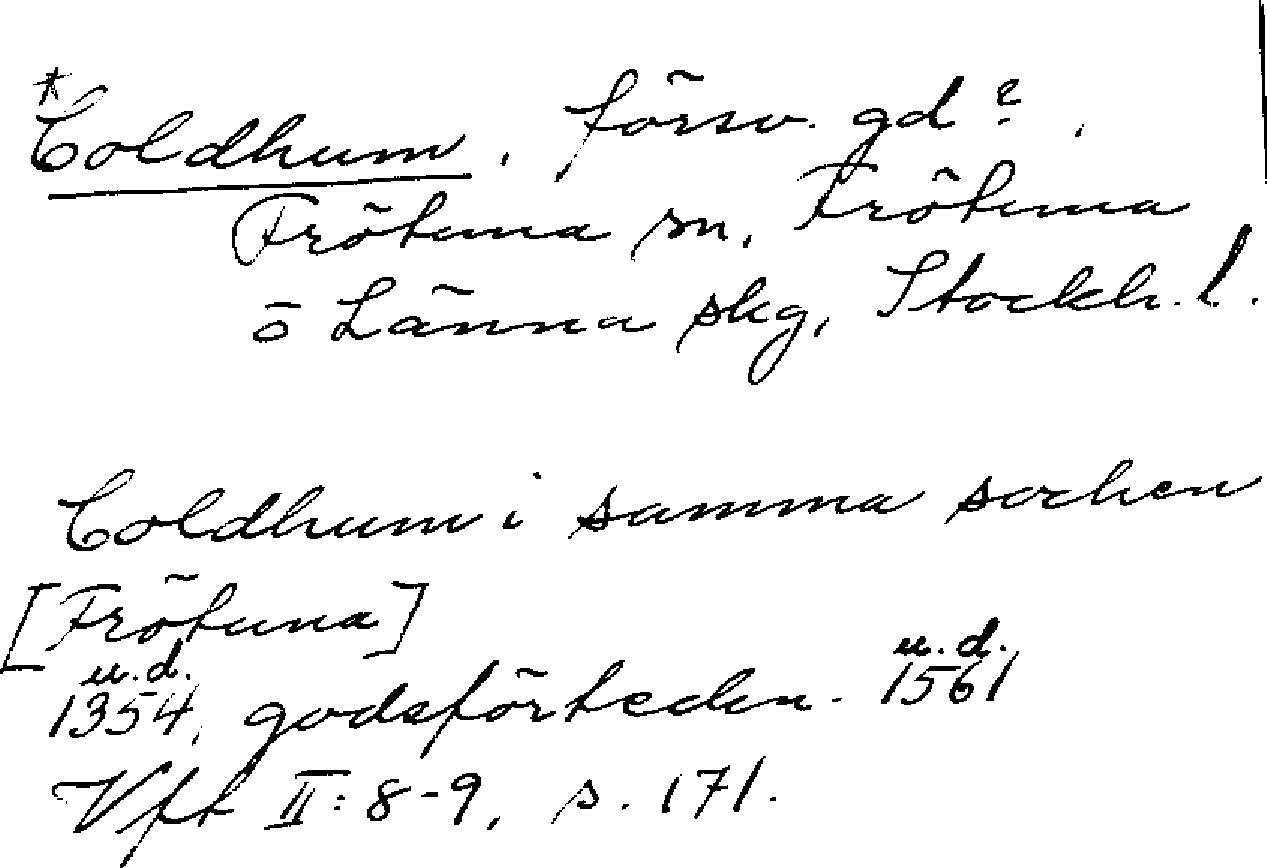 *Coldhum, försv. gd?,
Frötuna sn, Frötuna
o Länna skg, Stockh. l.
Coldhum i samma sochen
[Frötuna]
u.d. u.d.
1354, godsförteckn. 1561
Vft II: 8-9, s. 171.